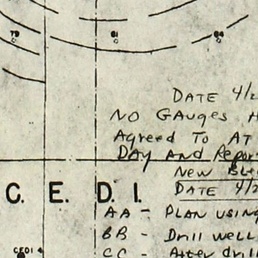 79 81 84
DATE 4/2
NO GAUGES H
Agreed To AT
DAY AND Repor
NEW BL
DATE 4/2
C. E. D. I.
AA - PLAN USING
BB - Drill well
CC - After drill